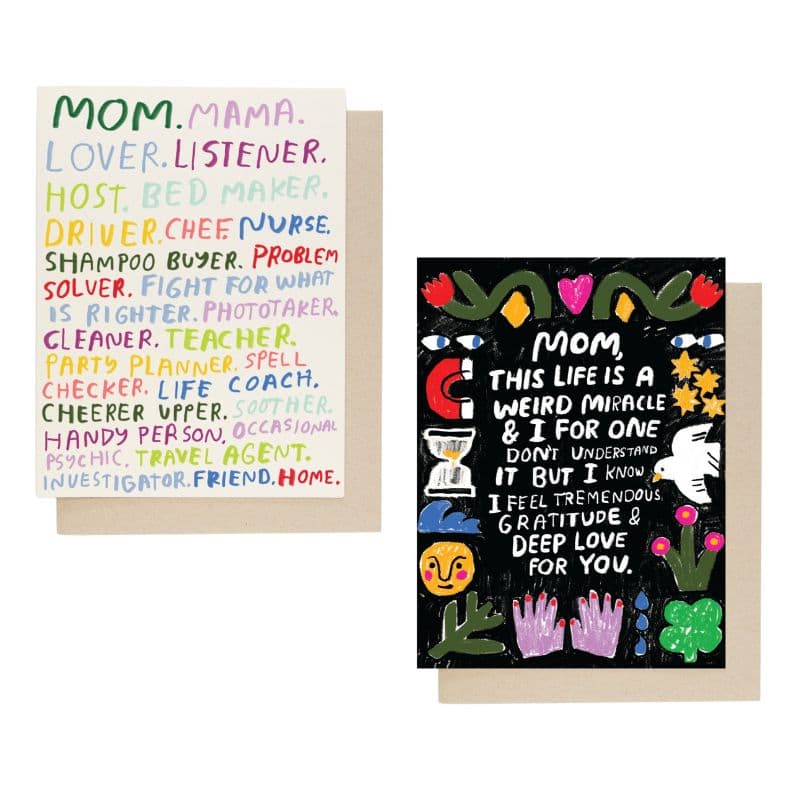 MOM. MAMA.
LOVER. LISTENER.
HOST. BED MAKER.
DRIVER. CHEF. NURSE.
SHAMPOO BUYER. PROBLEM
SOLVER. FIGHT FOR WHAT
IS RIGHTER. PHOTOTAKER.
CLEANER. TEACHER.
PARTY PLANNER. SPELL
CHECKER. LIFE COACH.
CHEERER UPPER. SOOTHER.
HANDY PERSON. OCCASIONAL
PSYCHIC. TRAVEL AGENT.
INVESTIGATOR. FRIEND. HOME.
MOM,
THIS LIFE IS A
WEIRD MIRACLE
& I FOR ONE
DON'T UNDERSTAND
IT BUT I KNOW
I FEEL TREMENDOUS
GRATITUDE &
DEEP LOVE
FOR YOU.